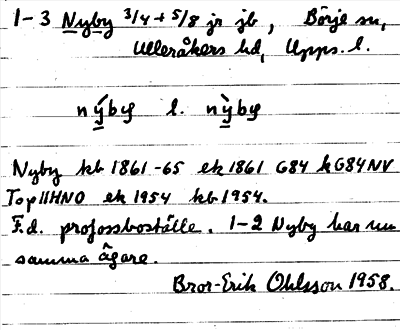 1-3 Nyby 3/4 + 5/8 jr jb, Börje sn,
Ulleråkers hd, Upps. l.
nýby l. nỳby
Nyby kb 1861-65 ek 1861 G84 kG84NV
Top11HNO ek 1954 kb 1954.
F.d. profossboställe. 1-2 Nyby har nu
samma ägare.
Bror-Erik Ohlsson 1958.